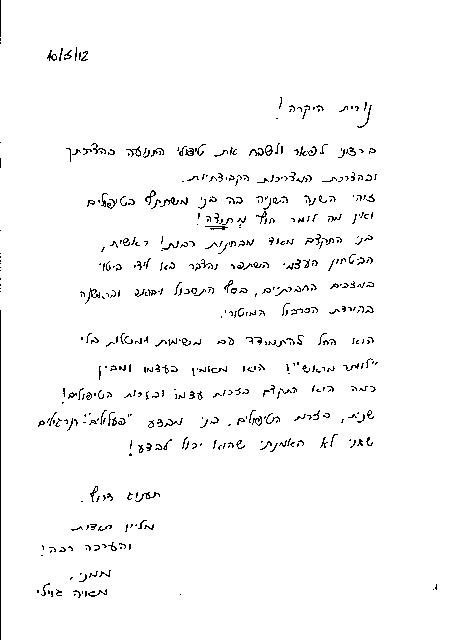 10/5/12
נורית היקרה!
ברצוני לפאר ולשבח את טיפולי התנועה בהדרכתך
ובהדרכת המדריכות הקבוצתיות.
זוהי השנה השניה בה בני משתתף בטיפולים
ואין מה לומר חוץ מתודה!
בני התקדם מאוד מבחינות רבות! ראשית,
הביטחון העצמי השתפר והדבר בא לידי ביטוי
במצבים החברתיים, בסף התסכול ובראשונה
בהורדת הסרבול המוטורי.
הוא החל להתמודד עם משימות ומטלות בלי
"לוותר מראש"! הוא מאמין בעצמו ומבין
כמה הוא התקדם בזכות עצמו ובזכות הטיפולים!
שנית, בזכות הטיפולים, בני מבצע "פעלולים" ותרגילים
שאני לא האמנתי שהוא יכול לבצע!
תענוג צרוף.
מליון תודות
והערכה רבה!
ממני,